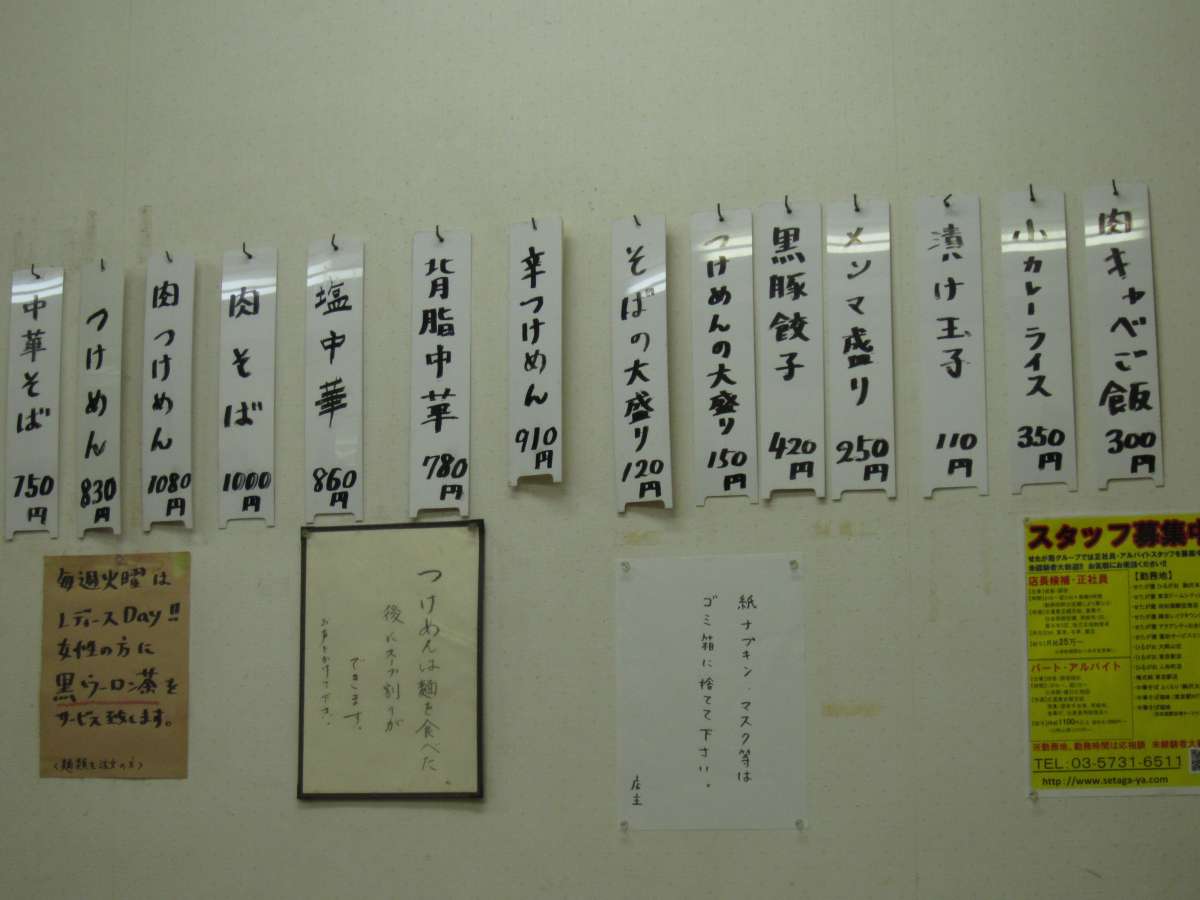 中華そば
750円
つけめん
830円
肉つけめん
1080円
肉そば
1000円
塩中華
860円
背脂中華
780円
辛つけめん
910円
そばの大盛り
120円
つけめんの大盛り
150円
黒豚餃子
420円
メンマ盛り
250円
漬け玉子
110円
小カレーライス
350円
肉キャベご飯
300円
毎週火曜は
レディースDay!!
女性の方に
黒ウーロン茶を
サービス致します。
(麺類ご注文の方)
つけめんは麺を食べた
後にスープ割りが
できます。
お声をかけて下さい。
紙ナプキン・マスク等は
ゴミ箱に捨てて下さい。
店主
スタッフ募集中
せたが屋グループでは正社員・アルバイトスタッフを募集中
未経験者大歓迎!! お気軽にお電話ください!!
店長候補・正社員
パート・アルバイト
【勤務地】
※勤務地、勤務時間は応相談 未経験者大
TEL:03-5731-6511
http://www.setaga-ya.com